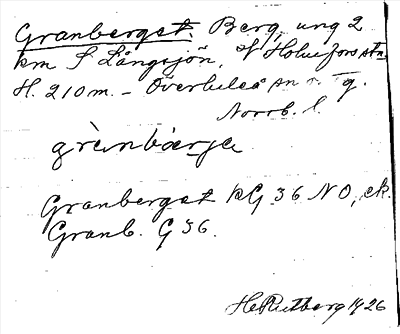 Granberget. Berg, ung 2
km S Långsjön, V Holmfors stn.
H. 210 m. – Överluleå sn
Norrb. l.
grànbärje
Granberget KG 36 NO, ek.
Granb. G 36.
H Rutberg 1926